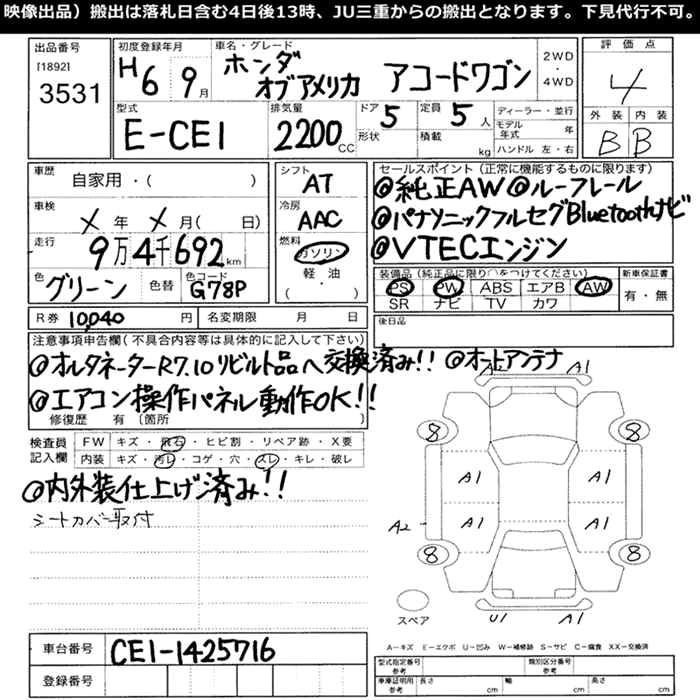 映像出品）搬出は落札日含む4日後13時、JU三重からの搬出となります。下見代行不可。
出品番号
[1892]
3531
初度登録年月
H6 9月
車名・グレード
ホンダ
オブアメリカ アコードワゴン
2WD
・
4WD
評価点
4
外装 内装
B B
型式
E-CE1
排気量
2200CC
ドア 5
形状
定員 5人
積載 kg
ディーラー・並行
モデル年式 年
ハンドル 左・右
車歴
自家用・( )
車検
X年 X月( 日)
走行
9万4千692km
色
グリーン
色替
色コード
G78P
シフト
AT
冷房
AAC
燃料
ガソリン
軽・油
( )
セールスポイント（正常に機能するものに限ります）
@純正AW@ルーフレール
@パナソニックフルセグBluetoothナビ
@VTECエンジン
装備品（純正品に限り○をつけてください）
PS PW ABS エアB AW
SR ナビ TV カワ
新車保証書
有・無
後日品
R券 10,040円
名変期限 月 日
注意事項申告欄（不具合内容等は具体的に記入して下さい）
@オルタネーターR7.10リビルト品へ交換済み!! @オートアンテナ
@エアコン操作パネル動作OK!!
修復歴 有〔箇所 〕
検査員
記入欄
FW キズ・飛石・ヒビ割・リペア跡・X要
内装 キズ・汚レ・コゲ・穴・スレ・キレ・破レ
@内外装仕上げ済み!!
シートカバー取付
A1 A1
8 8
A1 A1
A2 A1 A1
8 8
スペア
U1 A1
A－キズ E－エクボ U－凹み W－補修跡 S－サビ C－腐食 XX－交換済
車台番号 CE1-1425716
登録番号
型式指定番号
参考
類別区分番号
参考
車庫証明用
参考
長さ cm
幅 cm
高さ cm